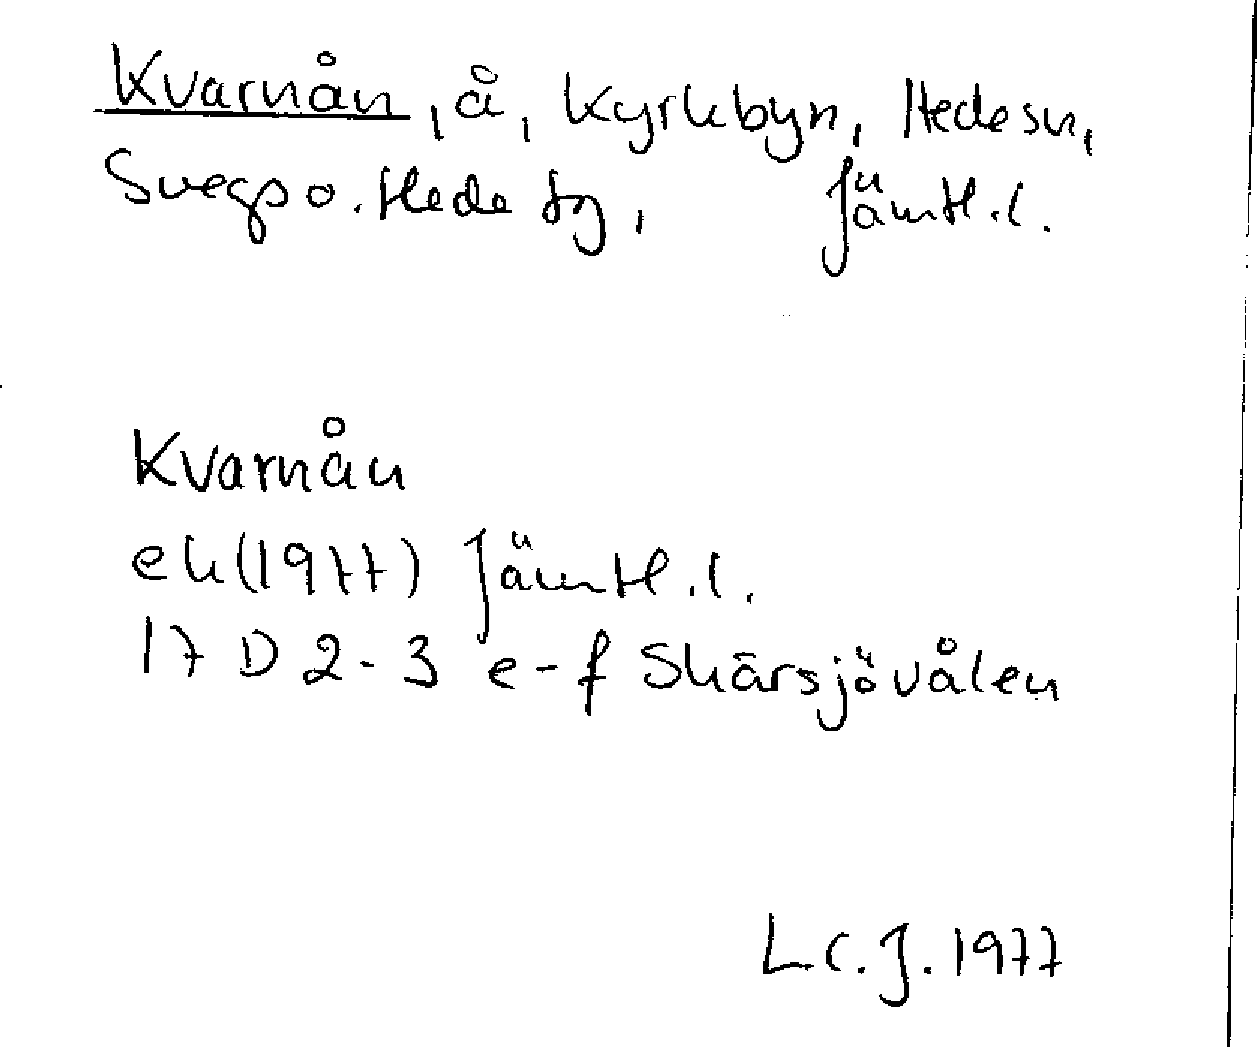 Kvarnån, å, Kyrkbyn, Hede sn,
Svegs o. Hede tg, Jämtl.l.
Kvarnån
ek(1977) Jämtl.l.
17 D 2-3 e-f Skärsjövålen
L C. J. 1977